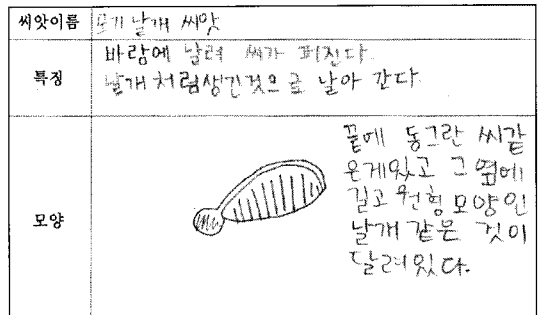 씨앗이름 모기 날개 씨앗
특징
바람에 날려 씨가 퍼진다.
날개 처럼생긴것으로 날아 간다.
모양
끝에 동그란 씨같
은게있고 그 옆에
길고 원형 모양인
날개 같은 것이
달려있다.